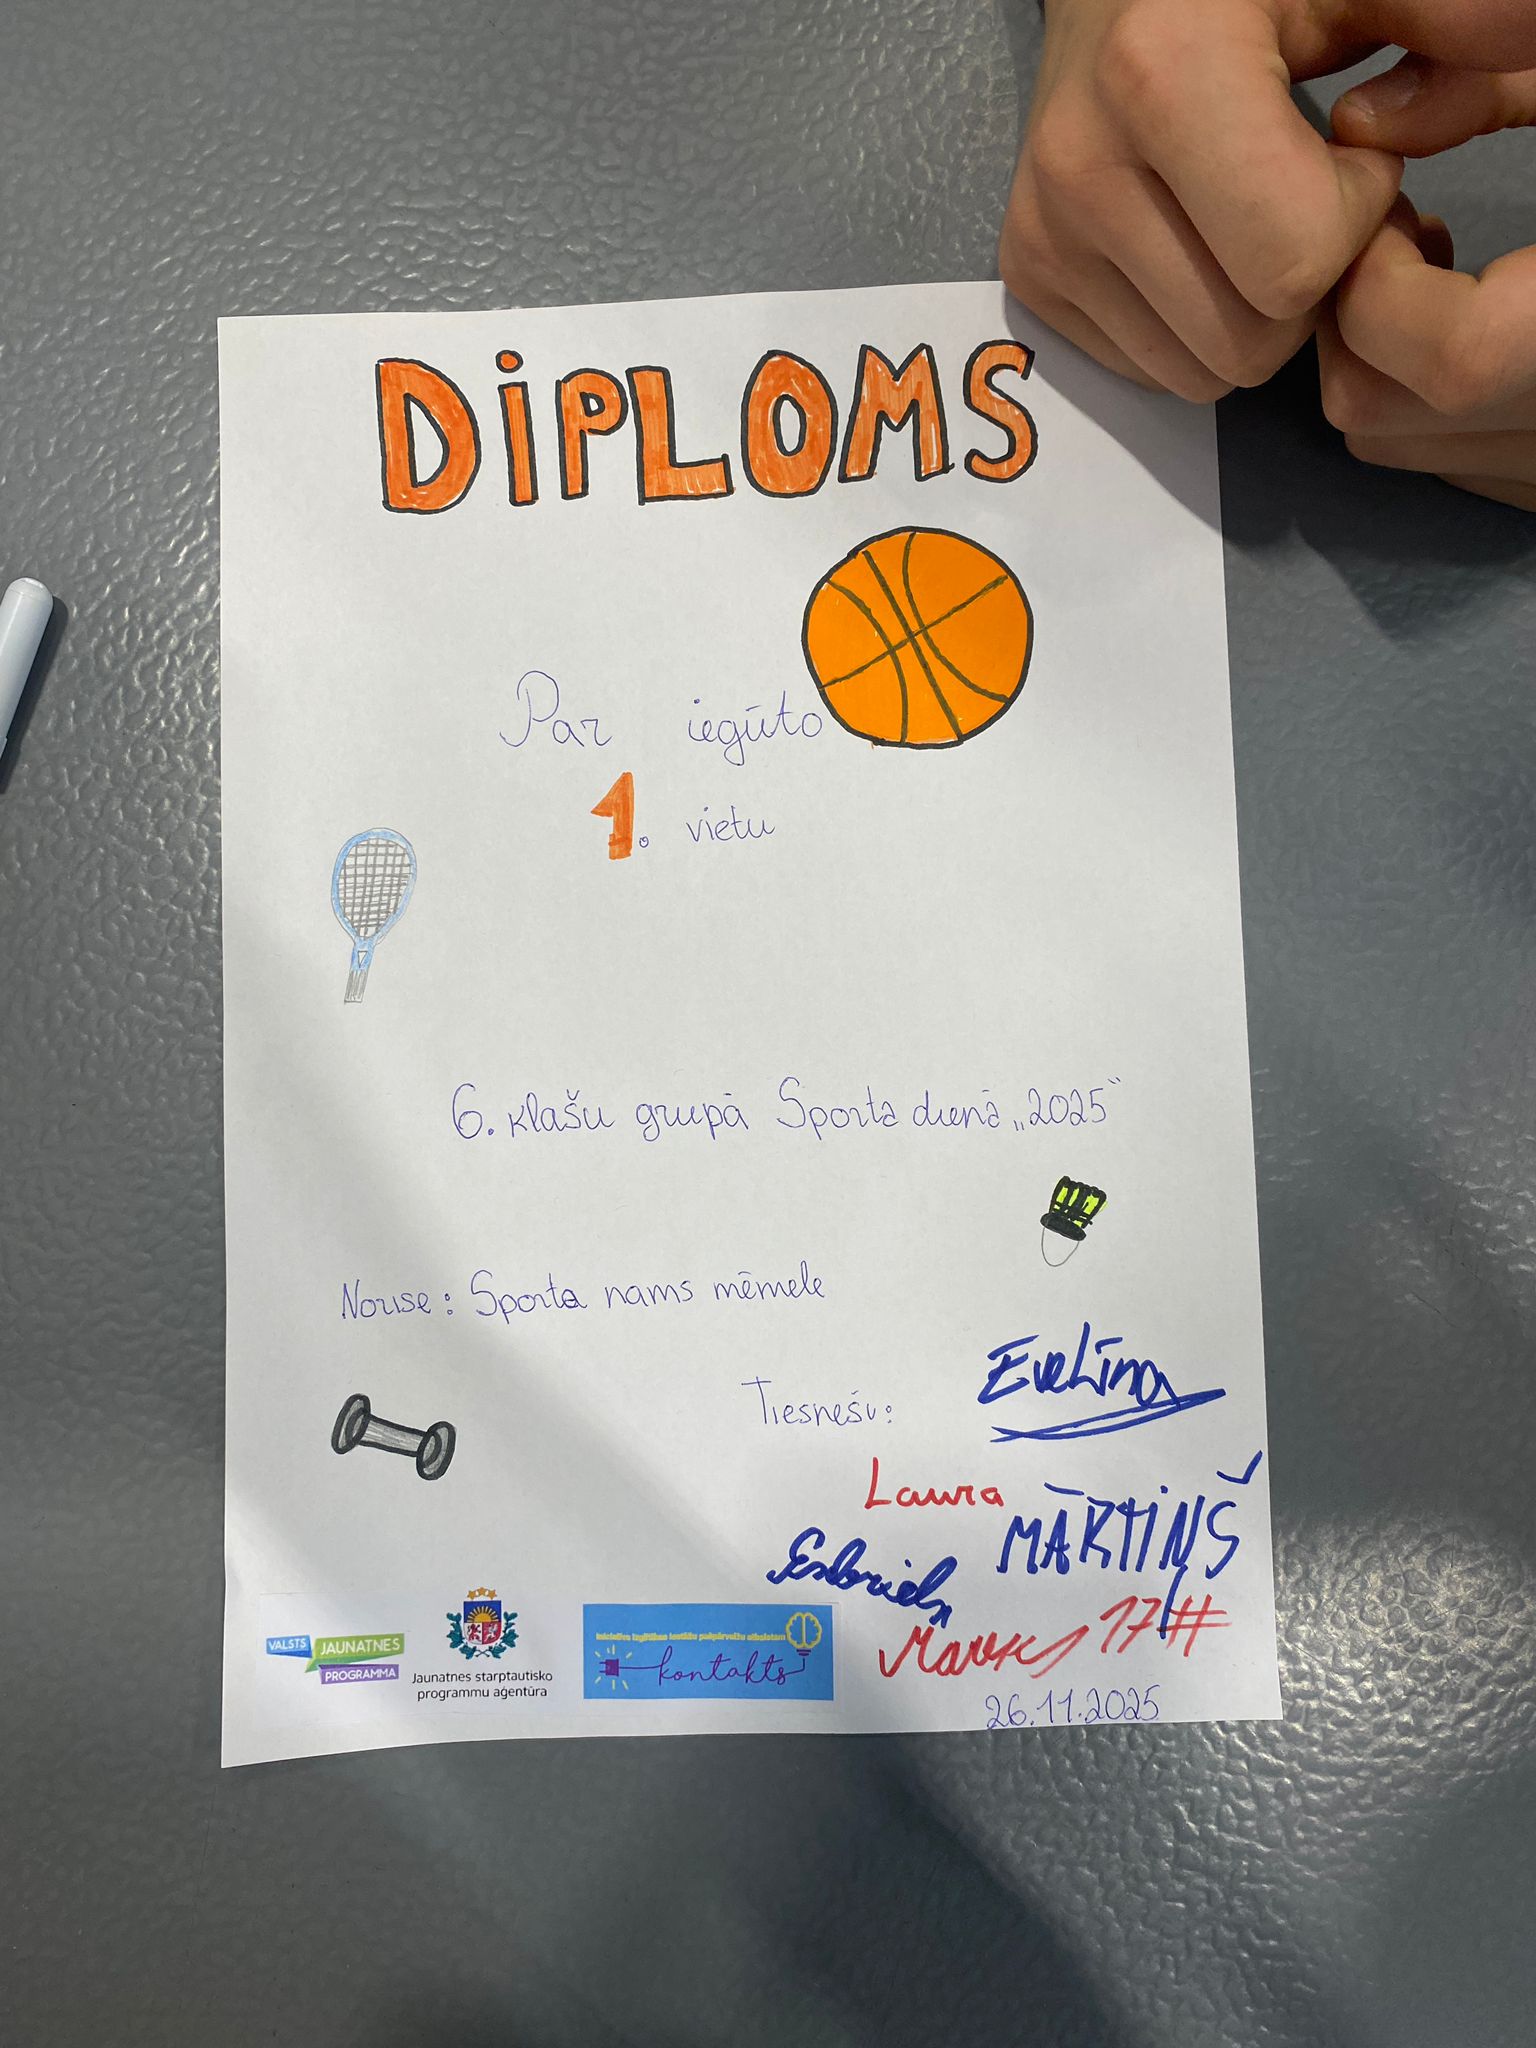 DiPLOMS
Par iegūto
1. vietu
6. klašu grupā Sporta dienā „2025"
Norise: Sporta nams mēmele
Tiesneši:
Evelīna
Laura
MĀRTIŅŠ
Gabriels
Markuss 17 #
26.11.2025
VALSTS
JAUNATNES
PROGRAMMA
Jaunatnes starptautisko
programmu aģentūra
Iniciatīva izglītības iestāžu pašpārvalžu atbalstam
kontakts